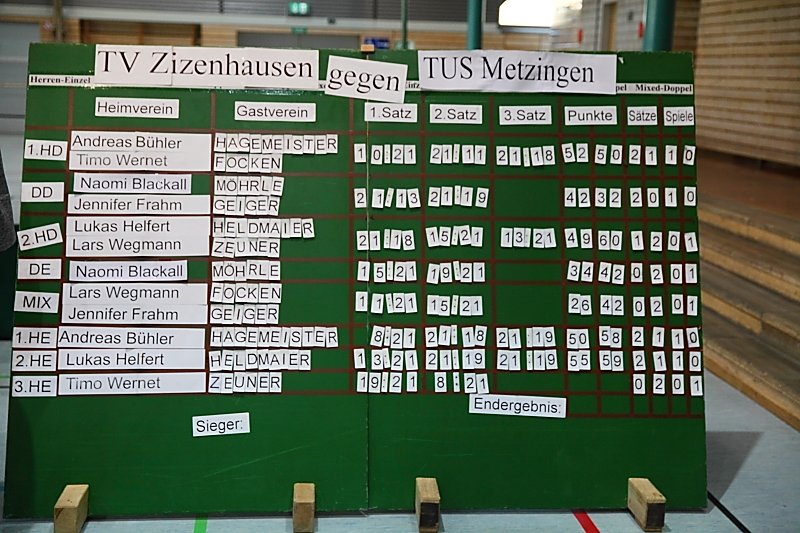 TV Zizenhausen gegen TUS Metzingen
Herren-Einzel Mixed-Doppel
Heimverein Gastverein 1.Satz 2.Satz 3.Satz Punkte Sätze Spiele
1.HD Andreas Bühler HAGEMEISTER
Timo Wernet FOCKEN 10:21 21:11 21:18 52 50 2 1 1 0
DD Naomi Blackall MÖHRLE
Jennifer Frahm GEIGER 21:13 21:19 42 32 2 0 1 0
2.HD Lukas Helfert HELDMAIER
Lars Wegmann ZEUNER 21:18 15:21 13:21 49 60 1 2 0 1
DE Naomi Blackall MÖHRLE 15:21 19:21 34 42 0 2 0 1
MIX Lars Wegmann FOCKEN
Jennifer Frahm GEIGER 11:21 15:21 26 42 0 2 0 1
1.HE Andreas Bühler HAGEMEISTER 8:21 21:18 21:19 50 58 2 1 1 0
2.HE Lukas Helfert HELDMAIER 13:21 21:19 21:19 55 59 2 1 1 0
3.HE Timo Wernet ZEUNER 19:21 8:21 0 2 0 1
Endergebnis:
Sieger: